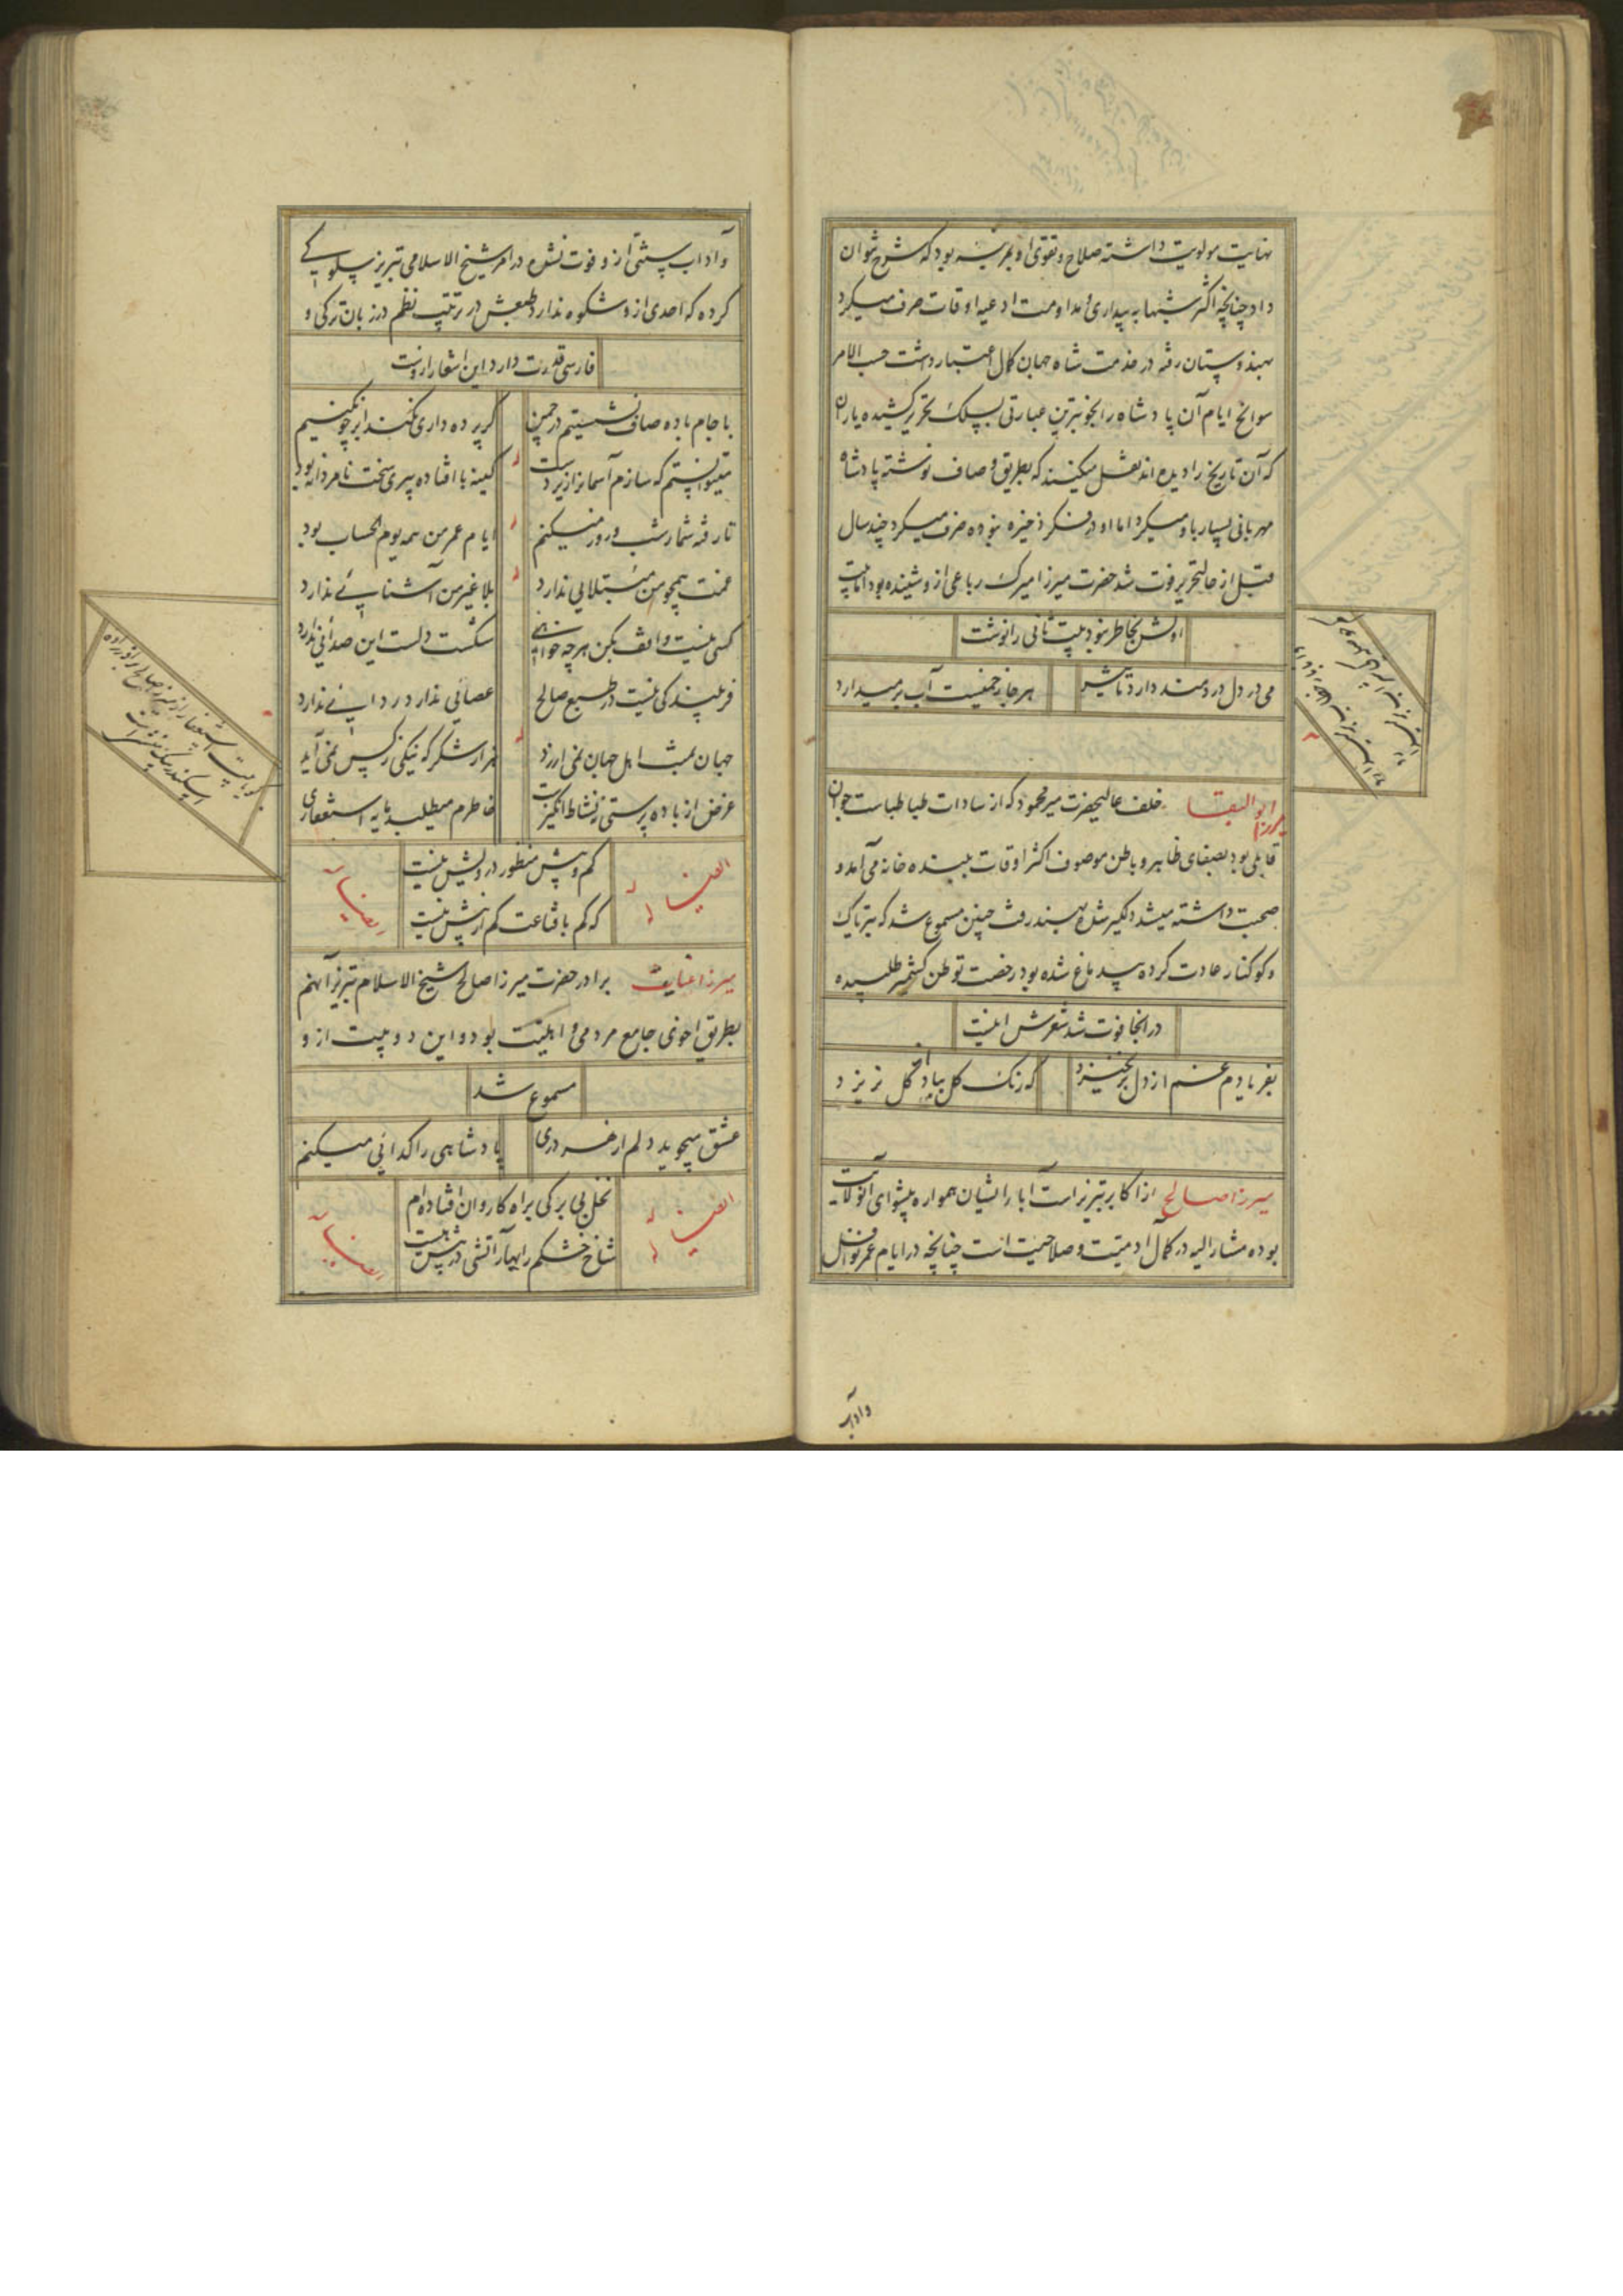 نهایت مولویت داشته صلاح و تقوی او بمرتبه بود که شرح نتوان
داد چنانچه اکثر شبها به بیداری و مداومت ادعیه اوقات صرف میکرد
بهندوستان رفته در خدمت شاه جهان کمال اعتبار داشت حسب الامر
سوانح ایام آن پادشاه را بخوبترین عبارتی بسلک تحریر کشیده یاران
که آن تاریخ را دیده اند نقل میکنند که بطریق وصاف نوشته پادشاه
مهربانی بسیار باو میکرد اما او در فکر ذخیره نبوده صرف میکرد چند سال
قبل از حال تحریر فوت شد حضرت میرزا میرک رباعی از و شنیده بود اما بیت
اولش بخاطر نبود بیت ثانی را نوشت
می در دل دردمند دارد تاثیر
هر جا زخمیست آب برمیدارد
میرزا ابوالبقا خلف عالیحضرت میر محمود که از سادات طباطباست جوان
قابلی بود بصفای ظاهر و باطن موصوف اکثر اوقات ببنده خانه می آمد و
صحبت داشته میشد دلگیر شده بهند رفت چنین مسموع شد که بتریاک
و کوکنار عادت کرده بیدماغ شده بود رخصت توطن کشمیر طلبیده
در انجا فوت شد شعرش اینست
بفریادم غم از دل برنخیزد
که رنگ گل بباد از گل نریزد
میرزا صالح از اکابر تبریز است آبا ایشان همواره پیشوای آنولایت
بوده مشار الیه در کمال آدمیت و صلاحیت است چنانچه در ایام عمر نوافل
وآداب
وآداب سنتی از و فوت نشده در امر شیخ الاسلامی تبریز سلوکی
کرده که احدی از و شکوه ندارد طبعش در ترتیب نظم در زبان ترکی و
فارسی قدرت دارد این اشعار ازوست
با جام باده صاف نشستیم در چمن
گر پرده داری نکند ابر چون کنیم
میتوانستم که سازم آسمانرا زیردست
کینه با افتاده پیری سخت نامردانه بود
تا رفته شمار شب و روز میکنم
ایام عمر من همه یوم الحساب بود
غمت همچو من مبتلایی ندارد
بلا غیر من آشنائی ندارد
کسی نیست واقف بکن هر چه خواهی
شکست دلست این صدائی ندارد
فریبندگی نیست در طبع صالح
عصائی ندارد ردائی ندارد
جهان بمنت اهل جهان نمی ارزد
هزار شکر که نیکی ز کس نمی آید
غرض از باده پرستی نه نشاط انگیزیست
خاطرم میطلبد مایه استغفاری
ایضا له
کم و بیش منظور درویش نیست
که کم با قناعت کم از بیش نیست
ایضا له
میرزا عنایت برادر حضرت میرزا صالح شیخ الاسلام تبریز آنهم
بطریق اخوی جامع مردمی و اهلیت بود و این دو بیت از و
مسموع شد
عشق میجوید دلم از هر دری
پادشاهی را گدائی میکنم
ایضا له
نخل بی برگی براه کاروان افتاده ام
شاخ خشکم را بهار آتشی در پیش نیست
ایضا له